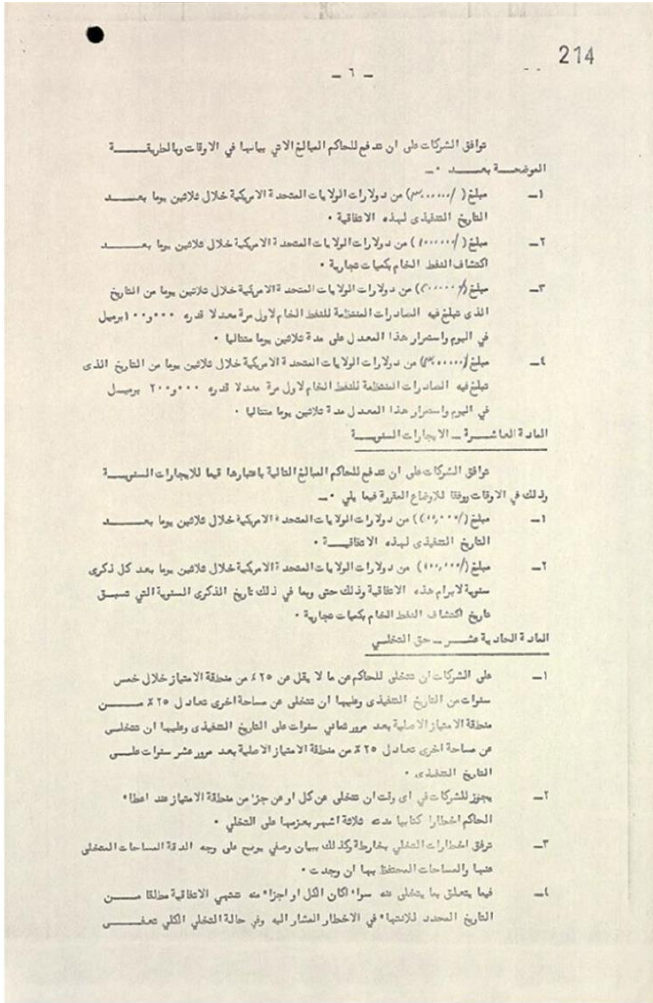 214
- ٦ -
توافق الشركات على ان تدفع للحاكم المبالغ الاتي بيانها في الاوقات وبالطريقة
الموضحة بعد ٠-
١- مبلغ ( / ) من دولارات الولايات المتحدة الامريكية خلال ثلاثين يوما بعد
التاريخ التنفيذى لهذه الاتفاقية ٠
٢- مبلغ ( / ) من دولارات الولايات المتحدة الامريكية خلال ثلاثين يوما بعد
اكتشاف النفط الخام بكميات تجارية ٠
٣- مبلغ ( / ) من دولارات الولايات المتحدة الامريكية خلال ثلاثين يوما من التاريخ
الذى تبلغ فيه الصادرات المنتظمة للنفط الخام لاول مرة معدلا قدره ١٠٠و٠٠٠ برميل
في اليوم واستمرار هذا المعدل على مدة ثلاثين يوما متتاليا ٠
٤- مبلغ ( / ) من دولارات الولايات المتحدة الامريكية خلال ثلاثين يوما من التاريخ الذى
تبلغ فيه الصادرات المنتظمة للنفط الخام لاول مرة معدلا قدره ٢٠٠و٠٠٠ برميل
في اليوم واستمرار هذا المعدل مدة ثلاثين يوما متتاليا ٠
المادة العاشرة - الايجارات السنوية
توافق الشركات على ان تدفع للحاكم المبالغ التالية باعتبارها قيما للايجارات السنوية
وذلك في الاوقات ووفقا للاوضاع المقررة فيما يلي ٠-
١- مبلغ ( / ) من دولارات الولايات المتحدة الامريكية خلال ثلاثين يوما بعد
التاريخ التنفيذى لهذه الاتفاقية ٠
٢- مبلغ ( / ) من دولارات الولايات المتحدة الامريكية خلال ثلاثين يوما بعد كل ذكرى
سنوية لابرام هذه الاتفاقية وذلك حتى وبما في ذلك تاريخ الذكرى السنوية التي تسبق
تاريخ اكتشاف النفط الخام بكميات تجارية ٠
المادة الحادية عشر - حق التخلي
١- على الشركات ان تتخلى للحاكم عن ما لا يقل عن ٢٥٪ من منطقة الامتياز خلال خمس
سنوات من التاريخ التنفيذى وعليها ان تتخلى عن مساحة اخرى تعادل ٢٥٪ من
منطقة الامتياز الاصلية بعد مرور ثماني سنوات على التاريخ التنفيذى وعليها ان تتخلى
عن مساحة اخرى تعادل ٢٥٪ من منطقة الامتياز الاصلية بعد مرور عشر سنوات على
التاريخ التنفيذى ٠
٢- يجوز للشركات في اى وقت ان تتخلى عن كل او عن جزء من منطقة الامتياز عند اعطاء
الحاكم اخطارا كتابيا مدته ثلاثة اشهر بعزمها على التخلي ٠
٣- ترفق اخطارات التخلي بخارطة وكذلك ببيان وصفي يوضح على وجه الدقة المساحات المتخلى
عنها والمساحات المحتفظ بها ان وجدت ٠
٤- فيما يتعلق بما يتخلى عنه سواء اكان الكل او اجزاء منه تنتهي الاتفاقية مطلقا من
التاريخ المحدد للانتهاء في الاخطار المشار اليه وفي حالة التخلي الكلي تعفى